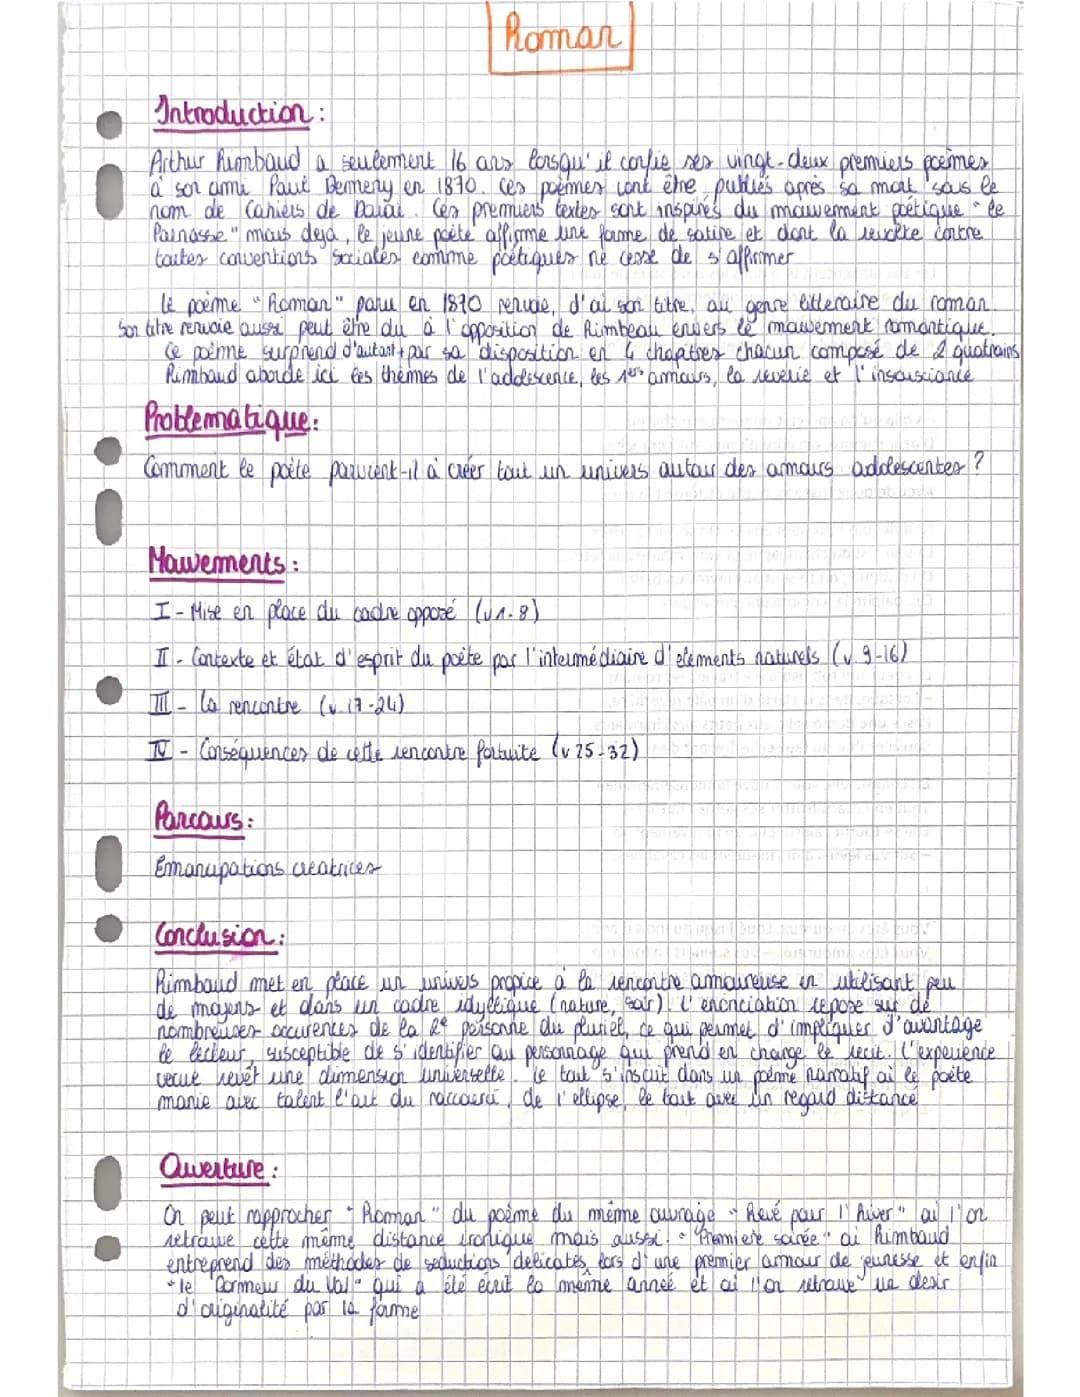 Roman
Introduction :
Arthur Rimbaud a seulement 16 ans lorsqu'il confie ses vingt-deux premiers poèmes
à son ami Paul Demeny en 1870. Ces poèmes vont être publiés après sa mort sous le
nom de Cahiers de Douai. Ces premiers textes sont inspirés du mouvement poétique "le
Parnasse" mais déjà, le jeune poète affirme une forme de satire et dont la révolte contre
toutes conventions sociales comme poétiques ne cesse de s'affirmer
Le poème "Roman" paru en 1870 renvoie, d'où son titre, au genre litteraire du roman.
Son titre renvoie aussi peut être du à l'opposition de Rimbeau envers le mouvement romantique.
Ce poème surprend d'autant + par sa disposition en 4 chapitres chacun composé de 2 quatrains
Rimbaud aborde ici les thèmes de l'adolescence, les 1ers amours, la reverie et l'insousiance
Problematique :
Comment le poète parvient-il à créer tout un univers autour des amours adolescentes ?
Mouvements :
I - Mise en place du cadre opposé (v1-8)
II - Contexte et état d'esprit du poète par l'intermédiaire d'elements naturels (v 9-16)
III - La rencontre (v.17-24)
IV - Conséquences de cette rencontre fortuite (v 25-32)
Parcours :
Emancipations creatrices
Conclusion :
Rimbaud met en place un univers propice à la rencontre amoureuse en utilisant peu
de moyens et dans un cadre idyllique (nature, soir). L'enonciation repose sur de
nombreuses occurences de la 2e personne du pluriel, ce qui permet d'impliquer d'avantage
le lecteur, susceptible de s'identifier au personnage qui prend en charge le recit. L'experience
vecue revêt une dimension universelle. Le tout s'inscrit dans un poème narratif où le poète
manie avec talent l'art du raccourci, de l'ellipse, le tout avec un regard distancé
Ouverture :
On peut rapprocher "Roman" du poème du même ouvrage "Revé pour l'hiver" où l'on
retrouve cette même distance ironique mais aussi : "Premiere soirée" où Rimbaud
entreprend des méthodes de seductions delicates lors d'une premier amour de jeunesse et enfin
"le Dormeur du Val" qui a été écrit la même année et où l'on retrouve un desir
d'originalité par la forme